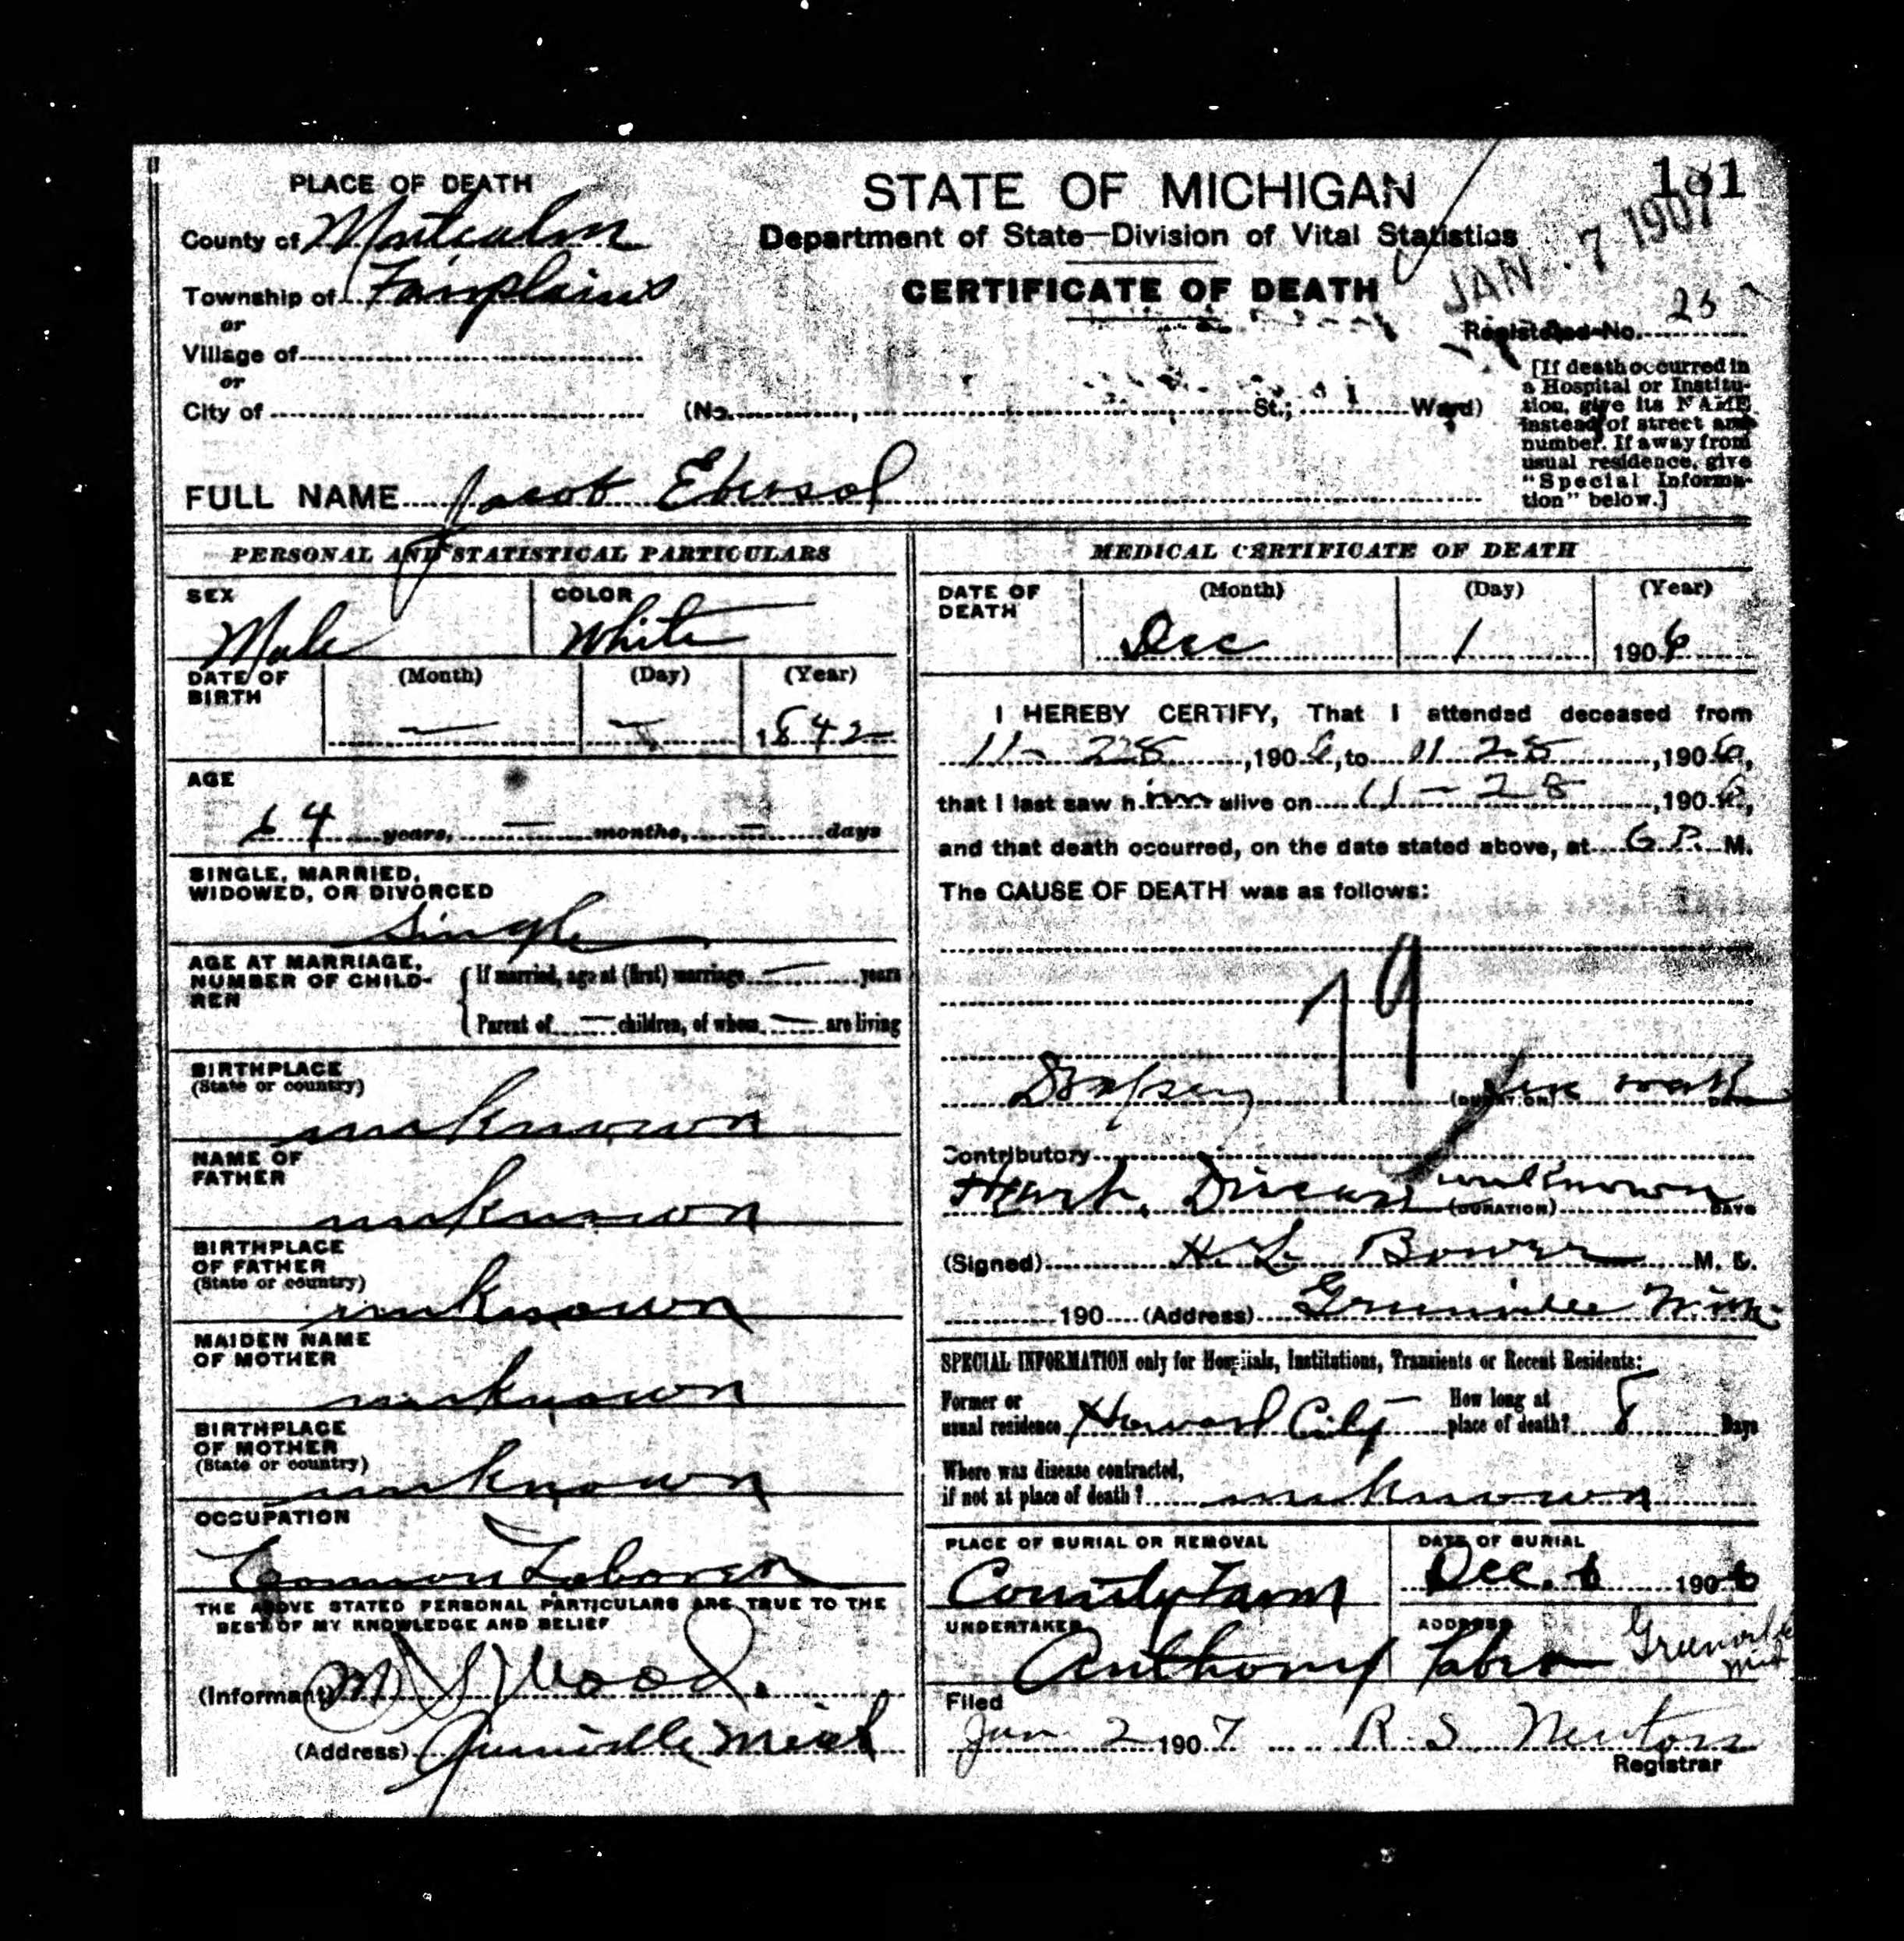 PLACE OF DEATH
County of Montcalm
Township of Fairplains
or
Village of
or
City of
STATE OF MICHIGAN
Department of State—Division of Vital Statistics
CERTIFICATE OF DEATH
181
JAN 7 1907
Registered No.
(No. , St.; Ward)
[If death occurred in
a Hospital or Institu-
tion, give its NAME
instead of street and
number. If away from
usual residence, give
"Special Informa-
tion" below.]
FULL NAME Jacob Ebersol
PERSONAL AND STATISTICAL PARTICULARS
SEX
Male
COLOR
White
DATE OF
BIRTH
(Month) (Day) (Year)
— — 1842
AGE
64 years, — months, — days
SINGLE, MARRIED,
WIDOWED, OR DIVORCED
Single
AGE AT MARRIAGE,
NUMBER OF CHILD-
REN
If married, age at (first) marriage — years
Parent of — children, of whom — are living
BIRTHPLACE
(State or country)
unknown
NAME OF
FATHER
unknown
BIRTHPLACE
OF FATHER
(State or country)
unknown
MAIDEN NAME
OF MOTHER
unknown
BIRTHPLACE
OF MOTHER
(State or country)
unknown
OCCUPATION
Common Laborer
THE ABOVE STATED PERSONAL PARTICULARS ARE TRUE TO THE
BEST OF MY KNOWLEDGE AND BELIEF
(Informant) Wood.
(Address) Greenville Mich
MEDICAL CERTIFICATE OF DEATH
DATE OF
DEATH
(Month) (Day) (Year)
Dec 1 1906
I HEREBY CERTIFY, That I attended deceased from
11-28, 1906, to 11 28, 1906,
that I last saw him alive on 11-28, 1906,
and that death occurred, on the date stated above, at 6 P. M.
The CAUSE OF DEATH was as follows:
79
Dropsy (DURATION) DAYS
Contributory
Heart Disease unknown (DURATION) DAYS
(Signed) H. L. Bower M. D.
190 (Address) Greenville Mich.
SPECIAL INFORMATION only for Hospitals, Institutions, Transients or Recent Residents:
Former or
usual residence Howard City
How long at
place of death? 8 Days
Where was disease contracted,
if not at place of death? unknown
PLACE OF BURIAL OR REMOVAL
County Farm
DATE OF BURIAL
Dec. 1906
UNDERTAKER
Anthony
ADDRESS
Greenville
Mich
Filed
Jan 2 1907 R. S. Newton
Registrar